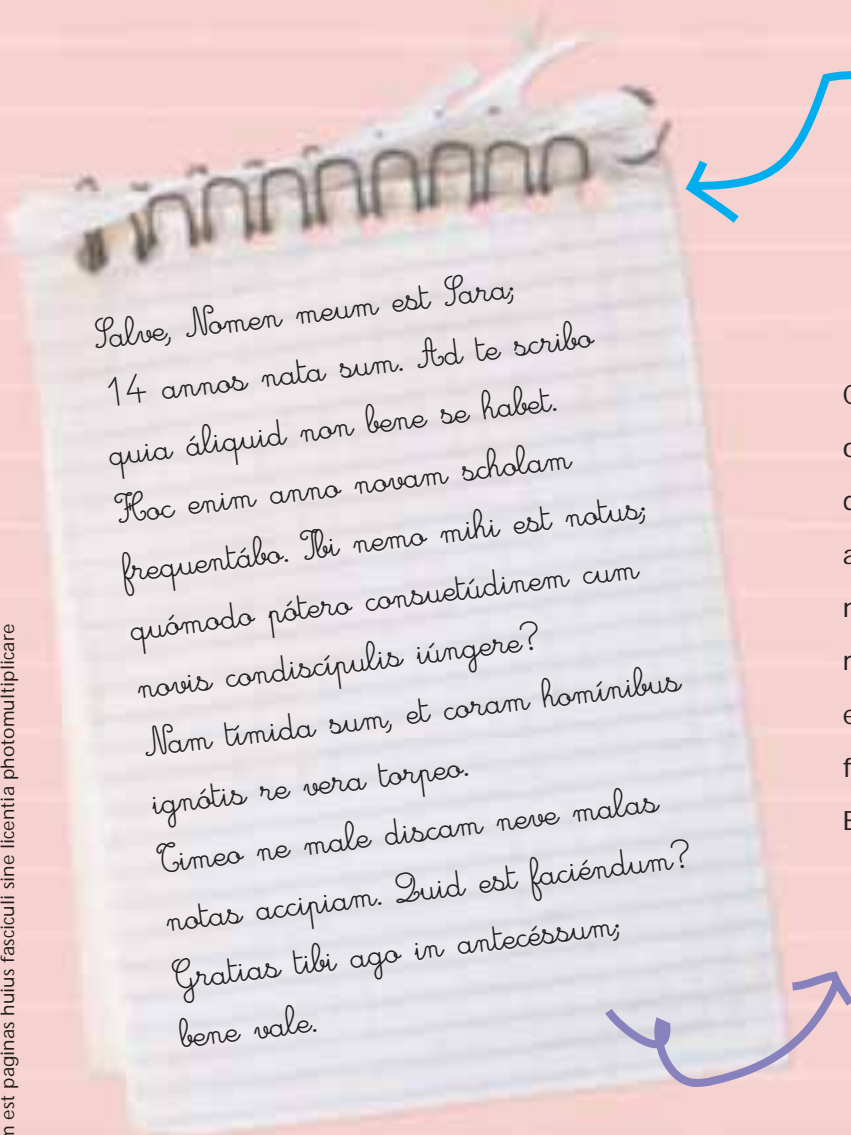 Salve, Nomen meum est Sara;
14 annos nata sum. Ad te scribo
quia áliquid non bene se habet.
Hoc enim anno novam scholam
frequentábo. Ibi nemo mihi est notus;
quómodo pótero consuetúdinem cum
novis condiscípulis iúngere?
Nam tímida sum, et coram homínibus
ignótis re vera torpeo.
Timeo ne male discam neve malas
notas accipiam. Quid est faciéndum?
Gratias tibi ago in antecéssum;
bene vale.
est paginas huius fasciculi sine licentia photomultiplicare